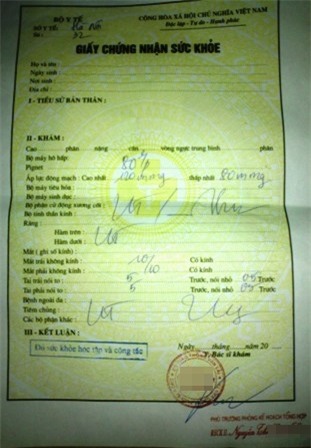 BỘ Y TẾ
SỞ Y TẾ: Hà Nội
Số : 32
CỘNG HÒA XÃ HỘI CHỦ NGHĨA VIỆT NAM
Độc lập - Tự do - Hạnh phúc
GIẤY CHỨNG NHẬN SỨC KHỎE
Họ và tên :
Ngày sinh :
Nơi sinh :
Địa chỉ :
I - TIỂU SỬ BẢN THÂN :
II - KHÁM :
Cao phân nặng cân vòng ngực trung bình phân
Bộ máy hô hấp :
Pignet 80
Áp lực động mạch : Cao nhất 120 mmg thấp nhất 80 mmg
Bộ máy tiêu hóa :
Bộ máy sinh dục :
Bộ phận cử động xương cốt :
Bộ thần kinh :
Răng :
Hàm trên :
Hàm dưới :
Mắt ( ghi số kính) :
Mắt trái không kính : 10/10 Có kính
Mắt phải không kính : Có kính
Tai trái nói to : 5 Trước, nói nhỏ 0,5 Trước
Tai phải nói to : 5 Trước, nói nhỏ 0,5 Trước
Bệnh ngoài da :
Tiêm chủng :
Các bộ phận khác :
III - KẾT LUẬN :
Đủ sức khỏe học tập và công tác
Ngày tháng năm 20
T. Bác sĩ khám
PHÓ TRƯỞNG PHÒNG KẾ HOẠCH TỔNG HỢP
Nguyễn Thị